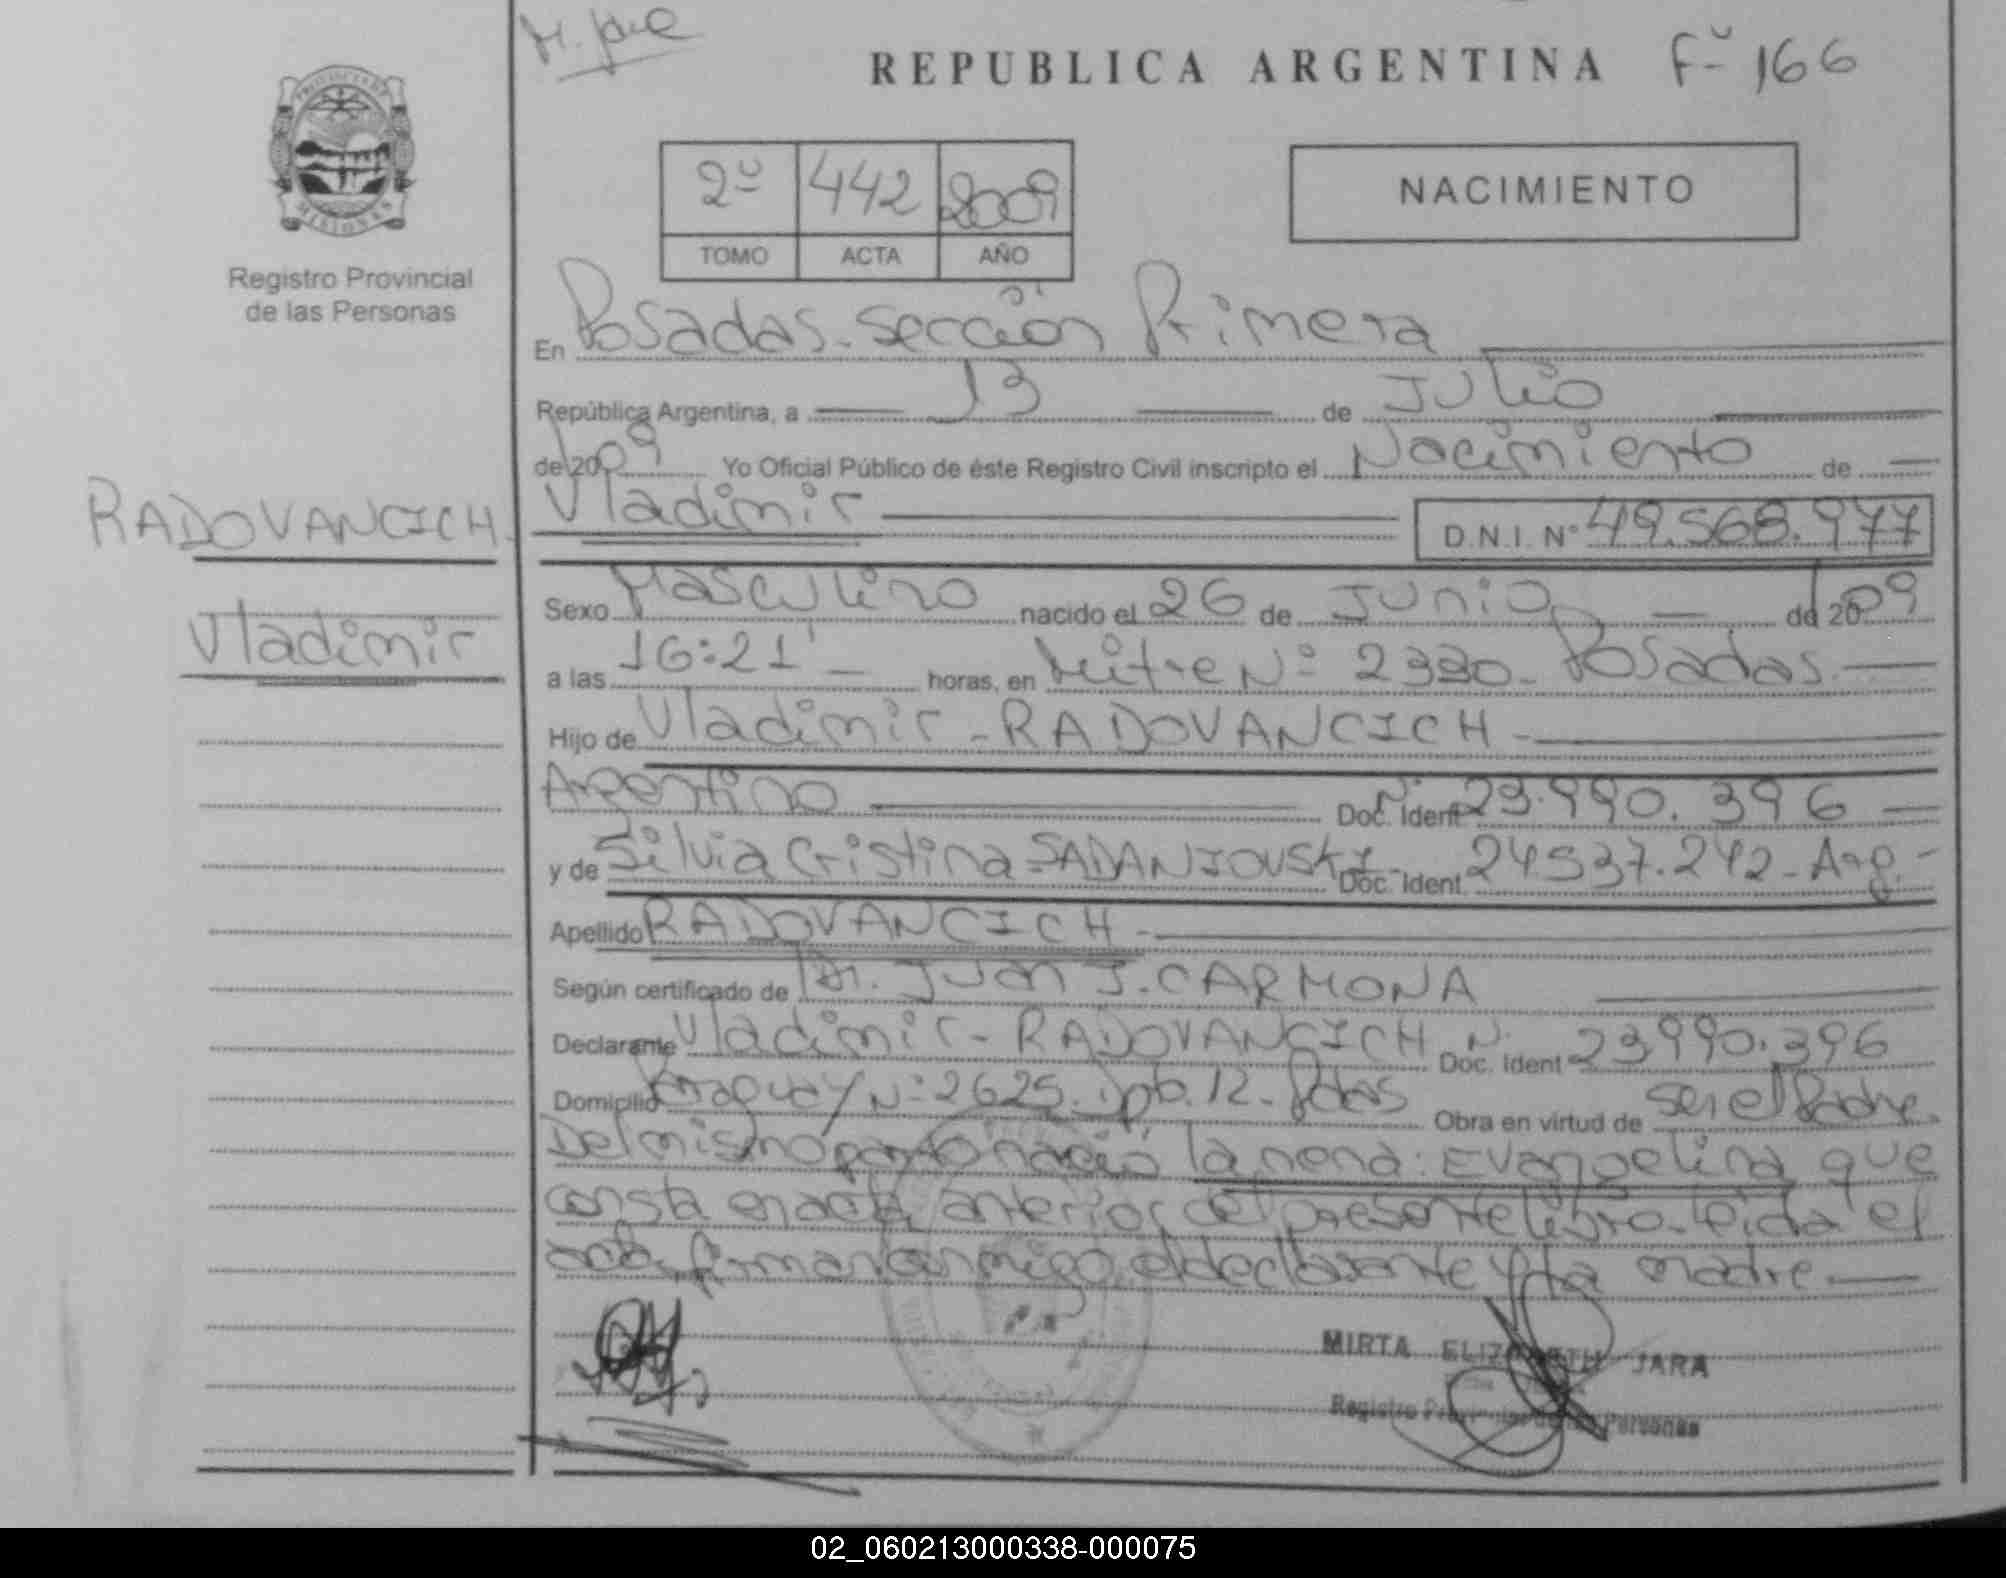 REPUBLICA ARGENTINA Fº 166
2º 442 2009
TOMO ACTA AÑO
NACIMIENTO
PROVINCIA DE
MISIONES
Registro Provincial
de las Personas
RADOVANCICH
Vladimir
En Posadas - Sección Primera
República Argentina, a 13 de Julio
de 2009 Yo Oficial Público de éste Registro Civil inscripto el Nacimiento de
Vladimir D.N.I. Nº 49.568.977
Sexo Masculino nacido el 26 de Junio de 2009
a las 16:21' horas, en Mitre Nº 2330 - Posadas.
Hijo de Vladimir - RADOVANCICH -
Argentino Doc. Ident Nº 23.990.396
y de Silvia Cristina - SADANIOVSKI - Doc. Ident. 24.537.242 - Arg. -
Apellido RADOVANCICH -
Según certificado de Dr. Juan J. CARMONA
Declarante Vladimir - RADOVANCICH Doc. Ident Nº 23.990.396
Domicilio Paraguay Nº 2625. Dpto. 12 - Pdas Obra en virtud de ser el Padre.
Del mismo parto nació la nena: Evangelina que
consta en acta anterior del presente libro - leida el
acta, firman conmigo el declarante y la madre
MIRTA ELIZABETH JARA
Registro Provincial de las Personas
02_060213000338-000075